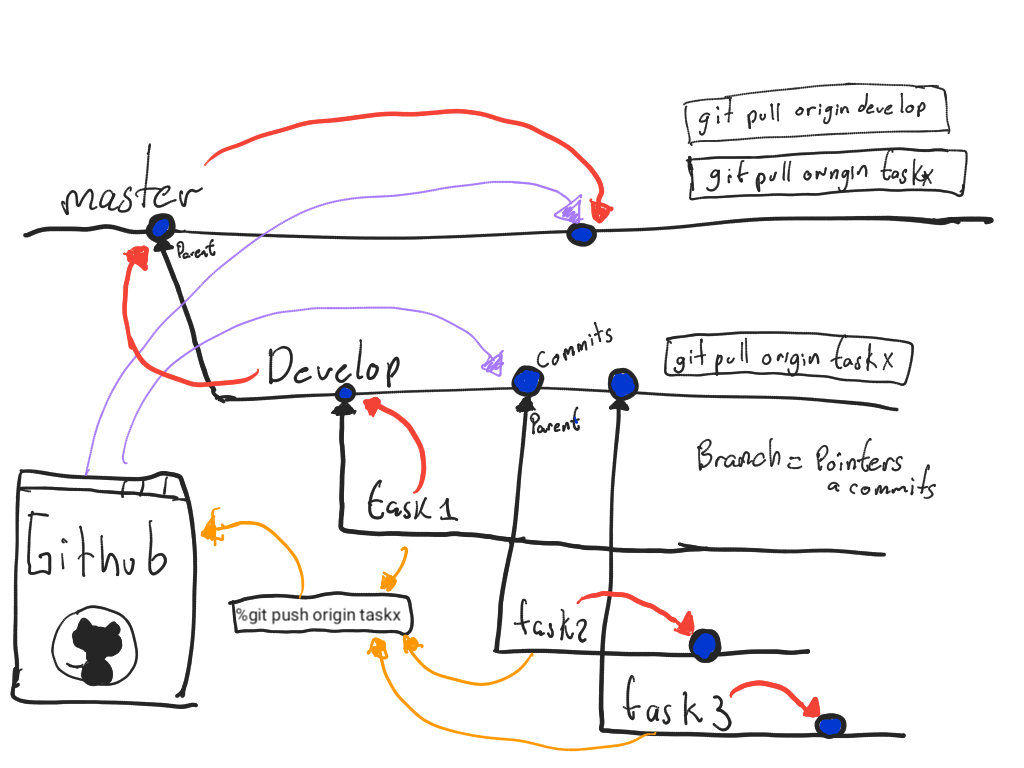 git pull origin develop
git pull oringin taskx
master
Parent
Commits
git pull origin task x
Develop
Parent
Branch = Pointers
a commits
task 1
Github
%git push origin taskx
task2
task 3